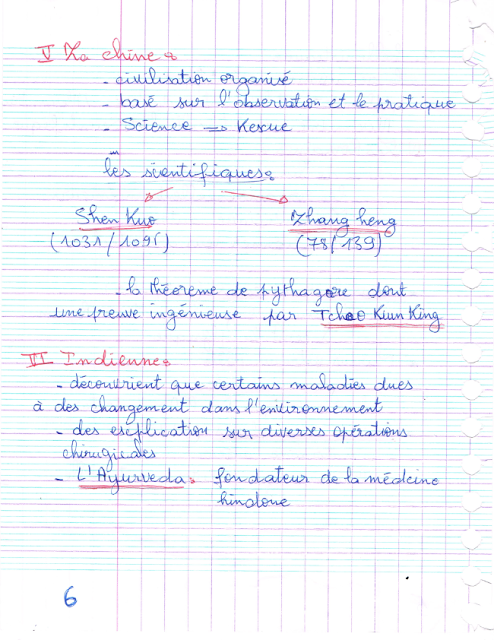 V La chine :
- civilisation organisé
- basé sur l'observation et le pratique
- Science => Kexue
les scientifiques :
Shen Kuo
Zhang heng
(1031/1095)
(78/139)
- le théoreme de pythagore dont
une preuve ingénieuse par Tchao Kiun King
VI Indienne :
- découvrient que certains maladies dues
à des changement dans l'environnement
- des eséplication sur diverses opérations
chirugicales
- L'Ayurveda : fondateur de la médcine
hindoue
6